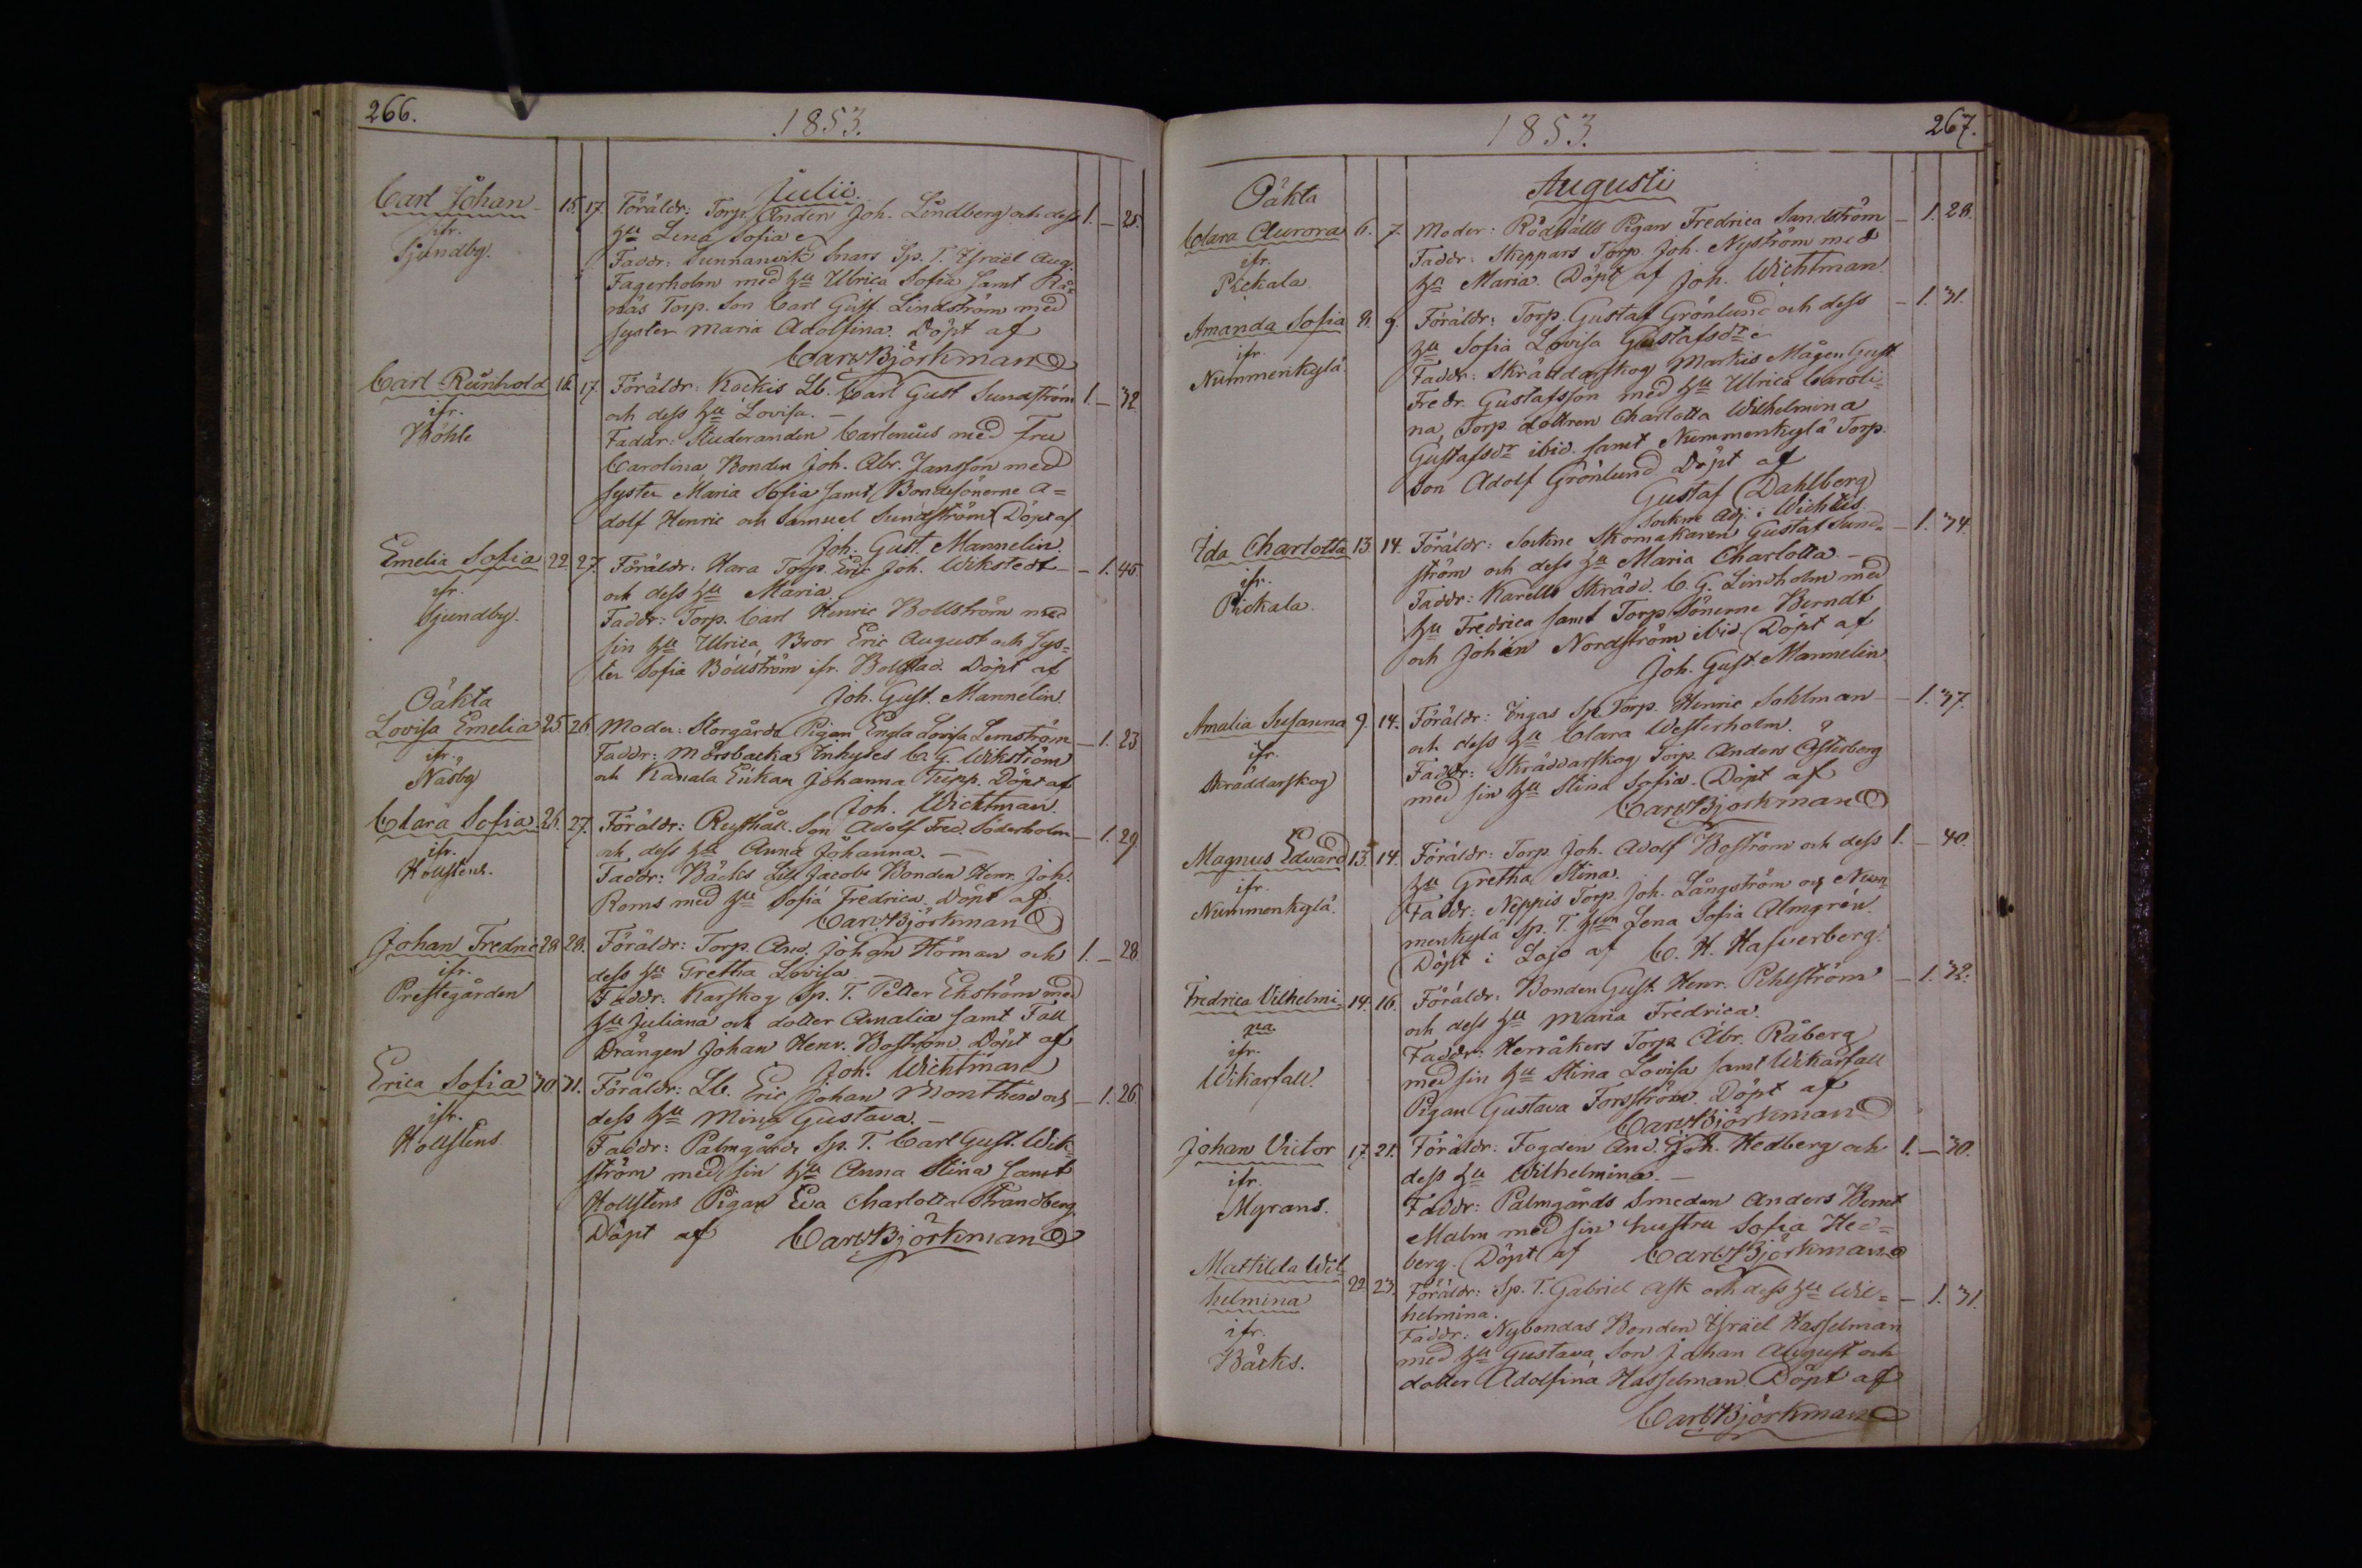 266.
1853.
Julii.
Carl Johan 15. 17. Föräldr: Torp. Anders Joh. Lindberg och dess 1. — 25.
ifr. hu Lena Sofia
Sjundby. Faddr: Sunnanvik Snars Sp. T. Israël Aug.
Fagerholm med hu Ulrica Sofia samt Rå-
näs Torp. Son Carl Gust. Lindström med
syster Maria Adolfina. Döpt af
Carl Björkman
Carl Reinhold 16. 17. Föräldr: Kockis Lb. Carl Gust Sundström 1. — 32.
ifr. och dess hu Lovisa. —
Böhle Faddr: Studeranden Carlenius med Fru
Carolina, Bonden Joh. Abr. Jansson med
syster Maria Sofia samt Bondesönerne A=
dolf Henric och Samuel Sundström. Döpt af
Joh. Gust. Mannelin.
Emelia Sofia 22. 27. Föräldr: Hara Torp. Eric Joh. Wikstedt — 1. 45.
ifr. och dess hu Maria.
Sjundby. Faddr: Torp. Carl Henric Bollström med
sin hu Ulrica, Bror Eric August och Sys=
ter Sofia Bollström ifr. Bollstad. Döpt af
Joh. Gust. Mannelin.
Oäkta
Lovisa Emelia 25. 26. Moder: Storgårds Pigan Engla Lovisa Lemström — 1. 23
ifr. Faddr: Mörsbacka Inhyses C. G. Wikström
Näsby och Kanala Enkan Johanna Tupp. Döpt af
Joh. Wichtman.
Clara Sofia 26. 27. Föräldr: Rusthåll. Son Adolf Fred. Söderholm — 1. 29.
ifr. och dess hu Anna Johanna. —
Hollstens. Faddr: Bäcks Lill Jacobs Bonden Henr. Joh.
Roms med hu Sofia Fredrica. Döpt af
Carl Björkman
Johan Fredric 28. 28. Föräldr: Torp. And. Johan Höman och 1. — 28.
ifr. dess hu Gretha Lovisa
Prestegården Faddr: Karskog Sp. T. Petter Ekström med
hu Juliana och dotter Amalia samt Fall
Drängen Johan Henr. Boström. Döpt af
Joh. Wichtman
Erica Sofia 30. 31. Föräldr: Lb. Eric Johan Monthén och — 1. 26.
ifr. dess hu Mina Gustava. —
Hollstens. Faddr: Palmgårds Sp. T. Carl Gust. Wik-
ström med sin hu Anna Stina samt
Hollstens Pigan Eva Charlotta Strandberg
Döpt af Carl Björkman
267.
1853.
Augusti
Oäkta
Clara Aurora 6. 7. Moder: Rödhälls Pigan Fredrica Sandström — 1. 28.
ifr. Faddr: Skeppars Torp. Joh. Nyström med
Pickala. hu Maria. Döpt af Joh. Wichtman.
Amanda Sofia 8. 9. Föräldr: Torp. Gustaf Grönlund och dess — 1. 31.
ifr. hu Sofia Lovisa Gustafsdr
Nummenkylä. Faddr: Skräddarskog Markis Mågen Gust.
Fredr. Gustafsson med hu Ulrica Caroli=
na, Torp. dottren Charlotta Wilhelmina
Gustafsdr ibid. samt Nummenkylä Torp.
son Adolf Grönlund. Döpt af
Gustaf Dahlberg
Sockne Adj. i Wichtis.
Ida Charlotta 13. 14. Föräldr: Sockne Skomakaren Gustaf Sund= — 1. 34.
ifr. ström och dess hu Maria Charlotta. —
Pickala. Faddr: Karells Skrädd. C. G. Lindholm med
hu Fredrica samt Torp. Sönerne Berndt
och Johan Nordström ibid. Döpt af
Joh. Gust. Mannelin.
Amalia Susanna 9. 14. Föräldr: Ingas Sp. Torp. Henric Sahlman — 1. 37.
ifr. och dess hu Clara Westerholm.
Skräddarskog Faddr: Skräddarskog Torp. Anders Österberg
med sin hu Stina Sofia. Döpt af
Carl Björkman
Magnus Edvard 13. 14. Föräldr: Torp. Joh. Adolf Boström och dess 1. — 40.
ifr. hu Gretha Stina.
Nummenkylä. Faddr: Neppis Torp. Joh. Långström och Num-
menkylä Sp. T. hun Lena Sofia Almgrén.
Döpt i Lojo af C. H. Hasverberg.
Fredrica Vilhelmi= 14. 16. Föräldr: Bonden Gust. Henr. Pihlström — 1. 32.
na och dess hu Maria Fredrica.
ifr. Faddr: Herråkers Torp. Abr. Råberg
Wikarfall. med sin hu Stina Lovisa samt Wikarfall
Pigan Gustava Forsström. Döpt af
Carl Björkman
Johan Victor 17. 21. Föräldr: Fogden And. Joh. Hedberg och 1. — 30.
ifr. dess hu Wilhelmina. —
Myrans. Faddr: Palmgårds Smeden Anders Bernt
Malm med sin hustru Sofia Hed=
berg. Döpt af Carl Björkman
Mathilda Wil= 22. 23. Föräldr: Sp. T. Gabriel Ask och dess hu Wil= — 1. 31.
helmina helmina.
ifr. Faddr: Nybondas Bonden Israël Hasselman
Bäcks. med hu Gustava, Son Johan August och
dotter Adolfina Hasselman. Döpt af
Carl Björkman